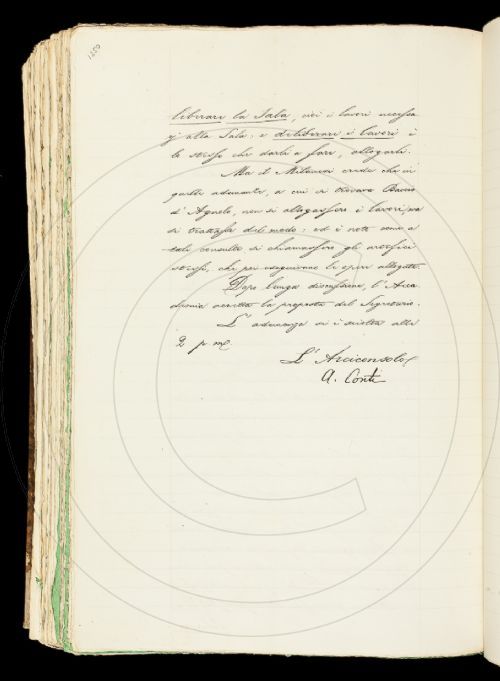 1250
liberare la Sala, cioè i lavori necessa
rj alla Sala: e deliberare i lavori è
lo stesso che darli a fare, allogarli.
Ma il Milanesi crede che in
quella adunanza, a cui si trovava Baccio
d'Agnolo, non si allogassero i lavori, ma
si trattasse del modo: ed è noto come a
tali consulte si chiamassero gli artefici
stessi, che poi eseguivano le opere allogate.
Dopo lunga discussione, l'Acca
demia accetta la proposta del Segretario.
L'adunanza si è sciolta alle
2 p m
L'Arciconsolo
A. Conti